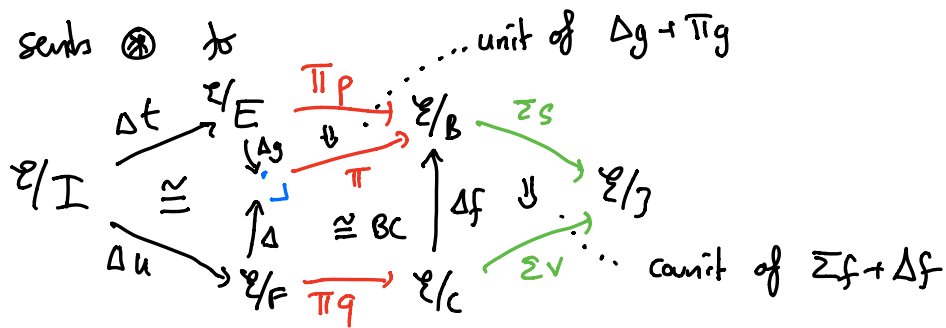 sends ⊛ to
unit of Δg ⊣ Πg
Δt ℰ/E Πp ℰ/B Σs
⇓
Δg Π
ℰ/I ≅ Δ ≅ BC Δf ⇓ ℰ/J
Δu ℰ/F Πq ℰ/C Σv
counit of Σf ⊣ Δf